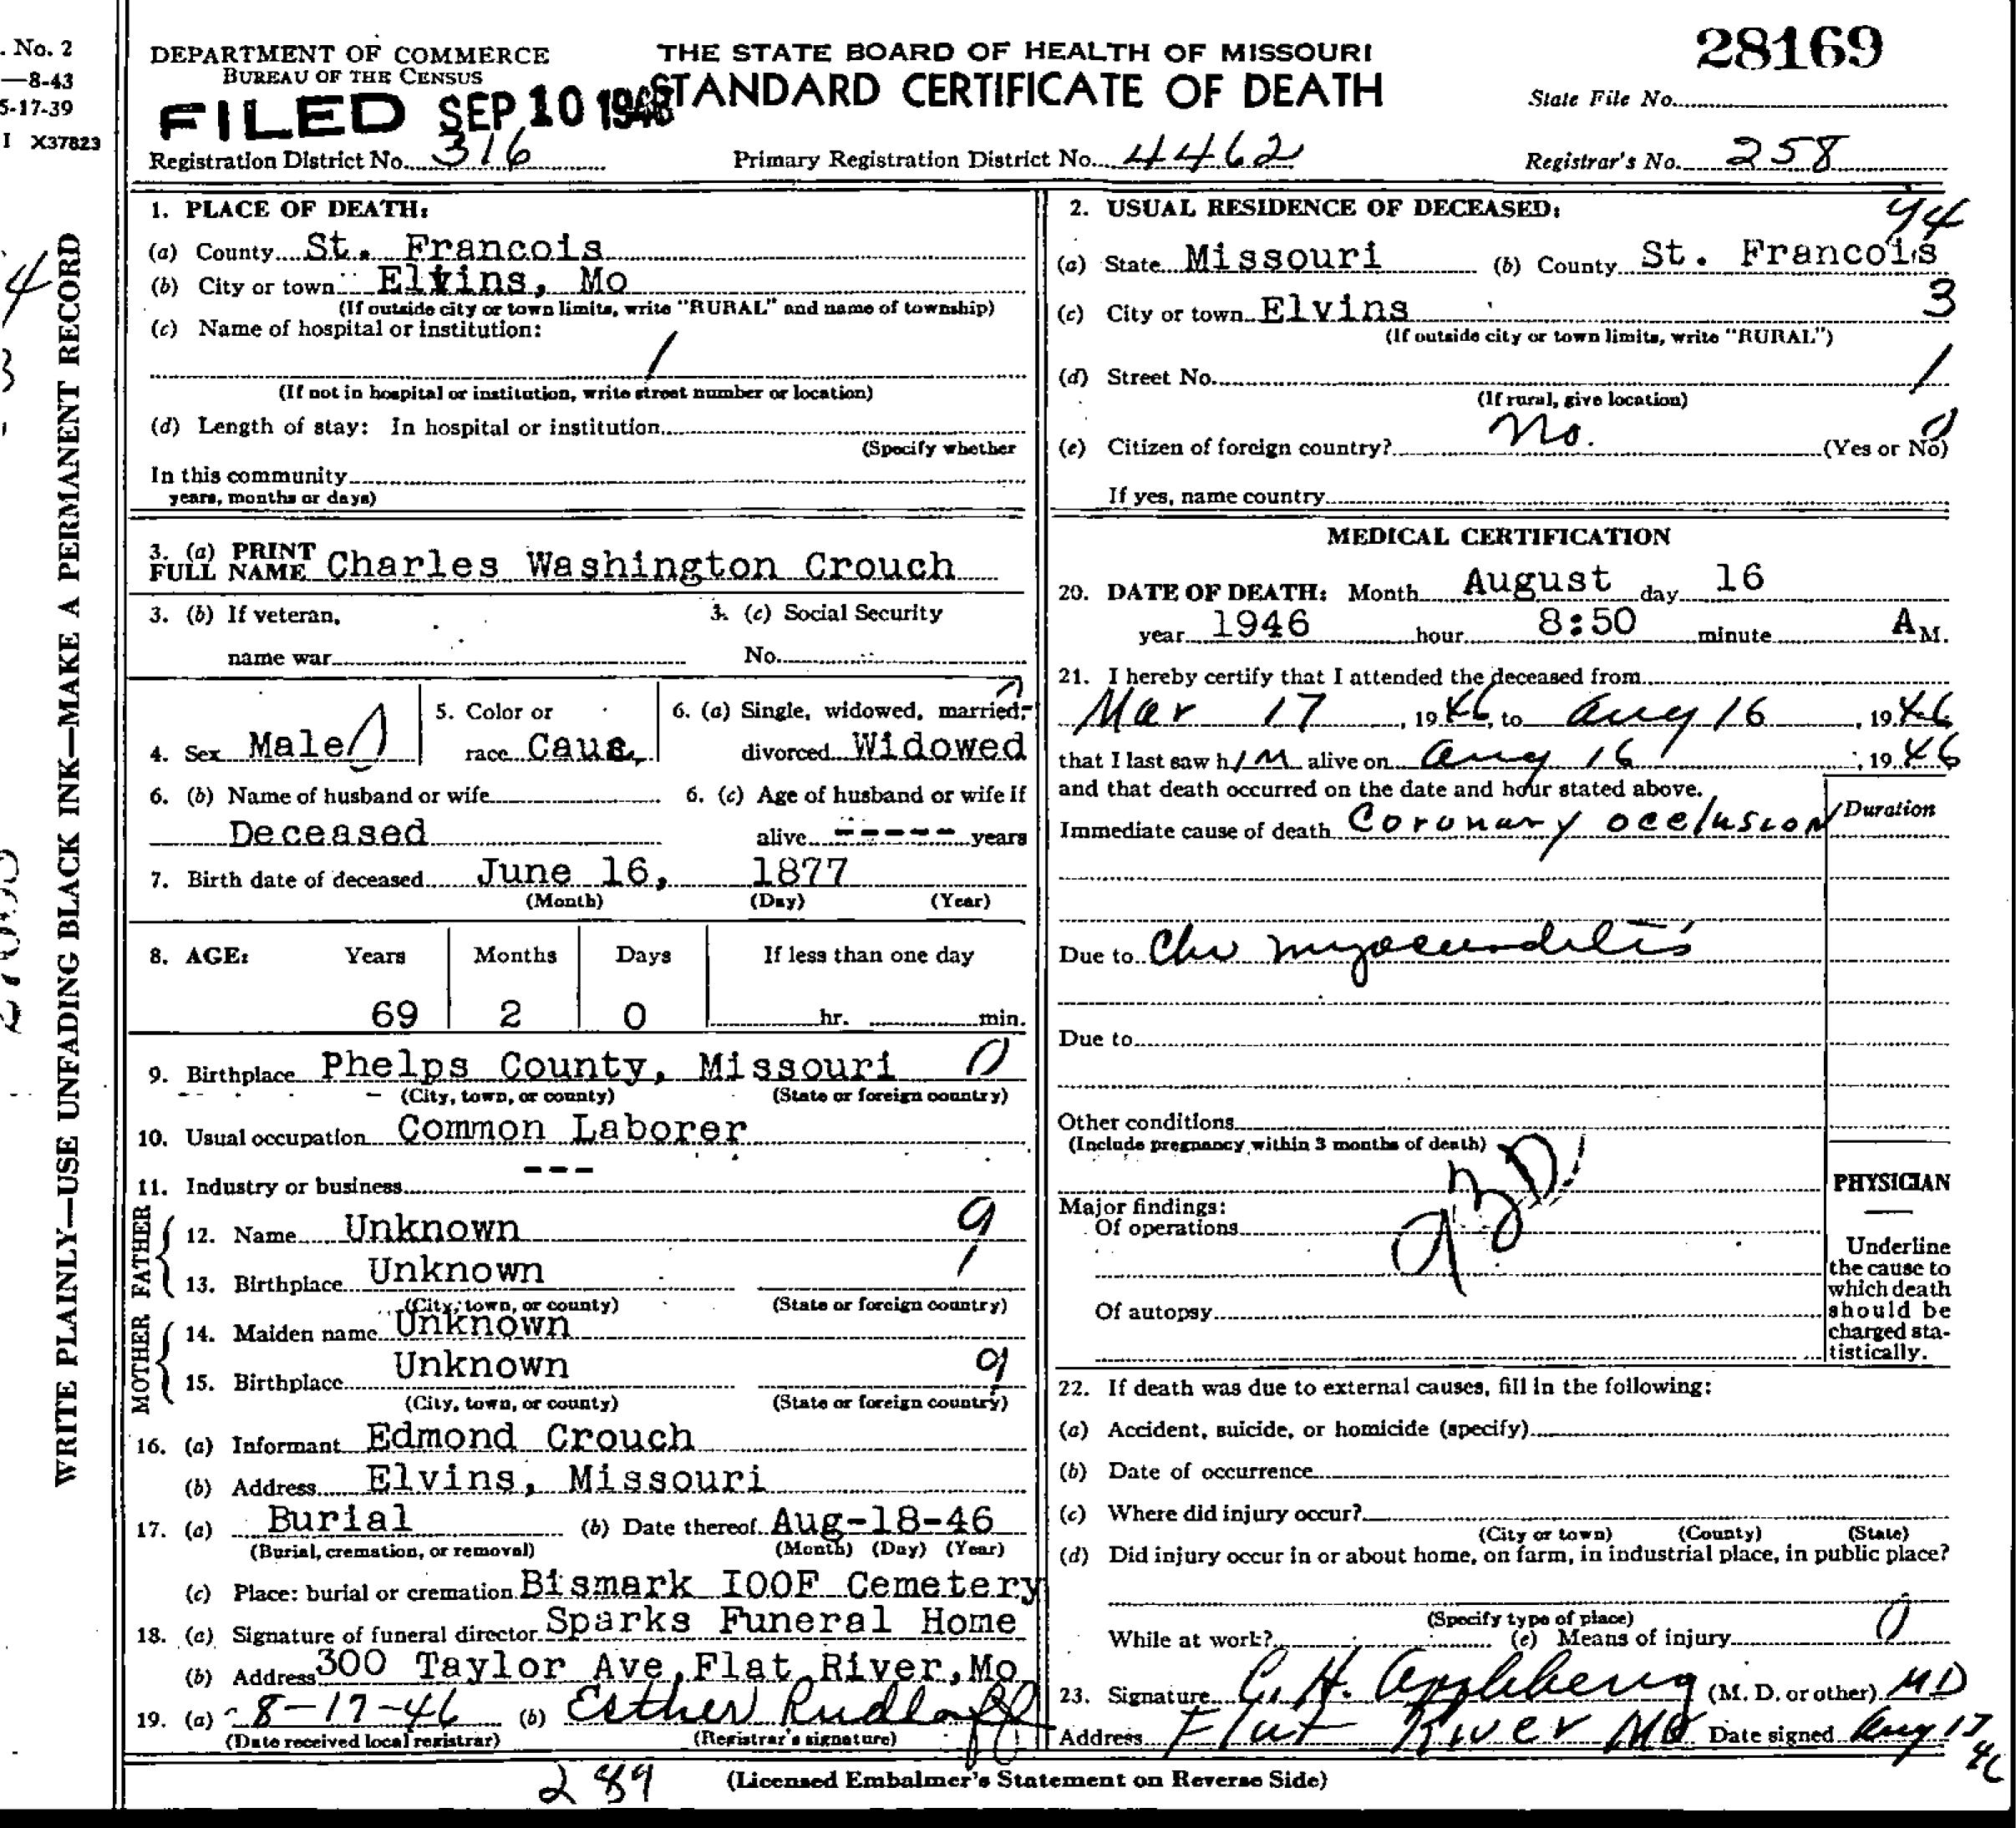 . No. 2
—8-43
5-17-39
I X37823
WRITE PLAINLY—USE UNFADING BLACK INK—MAKE A PERMANENT RECORD
DEPARTMENT OF COMMERCE
BUREAU OF THE CENSUS
THE STATE BOARD OF HEALTH OF MISSOURI
STANDARD CERTIFICATE OF DEATH
28169
State File No.
FILED SEP 10 1946
Registration District No. 316
Primary Registration District No. 4462
Registrar's No. 258
1. PLACE OF DEATH:
(a) County St. Francois
(b) City or town Elvins, Mo
(If outside city or town limits, write "RURAL" and name of township)
(c) Name of hospital or institution:
1
(If not in hospital or institution, write street number or location)
(d) Length of stay: In hospital or institution
(Specify whether
In this community
years, months or days)
3. (a) PRINT FULL NAME Charles Washington Crouch
3. (b) If veteran,
name war
3. (c) Social Security
No.
4. Sex Male
5. Color or
race Caus.
6. (a) Single, widowed, married,
divorced Widowed
6. (b) Name of husband or wife
Deceased
6. (c) Age of husband or wife if
alive ----- years
7. Birth date of deceased June 16, 1877
(Month) (Day) (Year)
8. AGE: Years Months Days If less than one day
69 2 0 hr. min.
9. Birthplace Phelps County, Missouri 0
(City, town, or county) (State or foreign country)
10. Usual occupation Common Laborer
---
11. Industry or business
FATHER
12. Name Unknown 9
13. Birthplace Unknown
(City, town, or county) (State or foreign country)
MOTHER
14. Maiden name Unknown
15. Birthplace Unknown 9
(City, town, or county) (State or foreign country)
16. (a) Informant Edmond Crouch
(b) Address Elvins, Missouri
17. (a) Burial (b) Date thereof Aug-18-46
(Burial, cremation, or removal) (Month) (Day) (Year)
(c) Place: burial or cremation Bismark IOOF Cemetery
18. (a) Signature of funeral director Sparks Funeral Home
(b) Address 300 Taylor Ave, Flat River, Mo
19. (a) 8-17-46 (b) Esther Rudloff
(Date received local registrar) (Registrar's signature)
2. USUAL RESIDENCE OF DECEASED: 94
(a) State Missouri (b) County St. Francois
(c) City or town Elvins 3
(If outside city or town limits, write "RURAL")
(d) Street No. 1
(If rural, give location)
(e) Citizen of foreign country? No. (Yes or No) 0
If yes, name country
MEDICAL CERTIFICATION
20. DATE OF DEATH: Month August day 16
year 1946 hour 8:50 minute A M.
21. I hereby certify that I attended the deceased from
Mar 17, 1946, to Aug 16, 1946
that I last saw him alive on Aug 16, 1946
and that death occurred on the date and hour stated above.
Duration
Immediate cause of death Coronary occlusion
Due to Chr myocarditis
Due to
Other conditions
(Include pregnancy within 3 months of death)
Major findings:
Of operations
Of autopsy
PHYSICIAN
Underline
the cause to
which death
should be
charged sta-
tistically.
22. If death was due to external causes, fill in the following:
(a) Accident, suicide, or homicide (specify)
(b) Date of occurrence
(c) Where did injury occur?
(City or town) (County) (State)
(d) Did injury occur in or about home, on farm, in industrial place, in public place?
(Specify type of place)
While at work? (e) Means of injury 0
23. Signature C. H. Appleberry (M. D. or other) MD
Address Flat River Mo Date signed Aug 17 46
289
(Licensed Embalmer's Statement on Reverse Side)